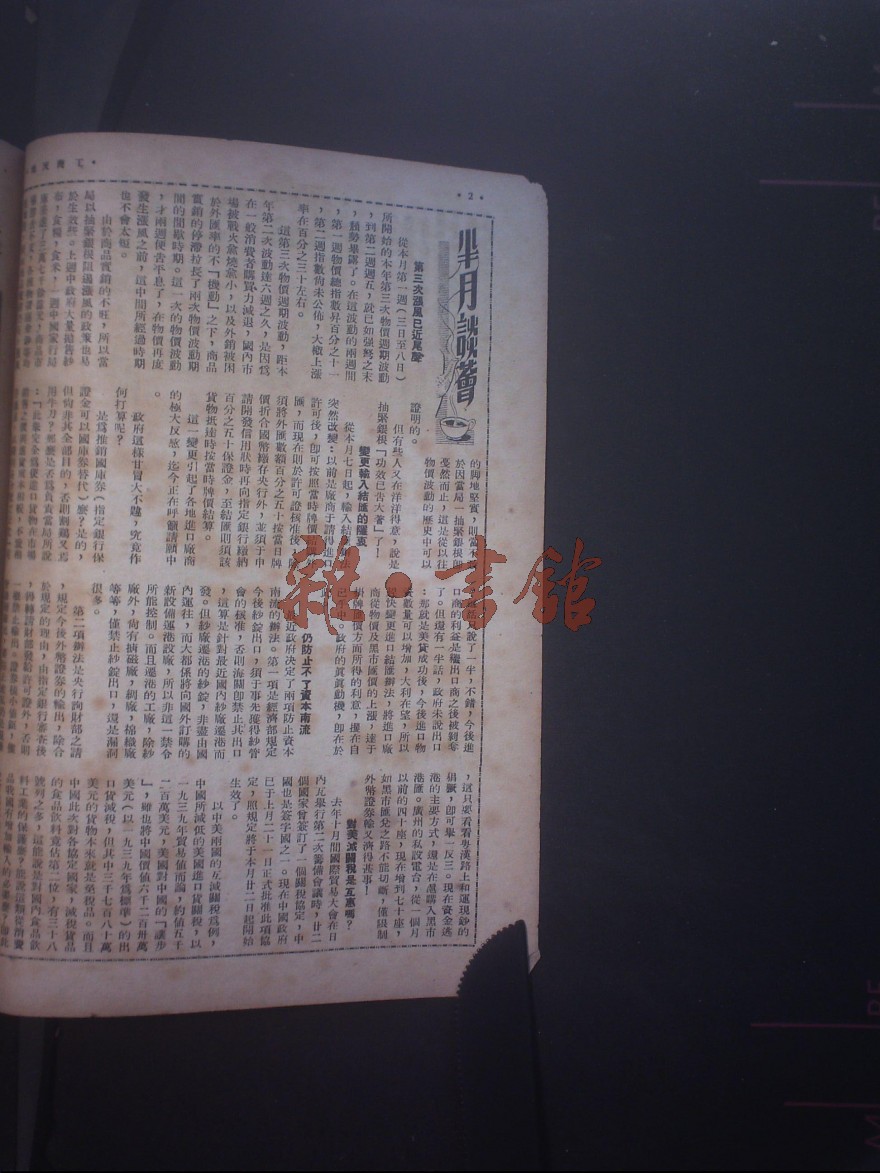 ・2・
半月談薈
第三次漲風已近尾聲
從本月第一週(三日至八日)
所開始的本年第三次物價週期波動
,到第二週週五,就已如強弩之末
,頹勢畢露了。在這波動的兩週間
,第一週物價總指數昇百分之十一
,第二週指數尚未公佈,大概上漲
率在百分之三十左右。
這第三次物價週期波動,距本
年第二次波動達六週之久,是因爲
在一般消費者購買力減退,國內市
場被戰火愈燒愈小,以及外銷被困
於外匯率的不「機動」之下,商品
實銷的停滯拉長了兩次物價波動期
間的間歇時期。這一次的物價波動
,才兩週便告平息了,在物價再度
發生漲風之前,這中間所經過時期
也不會太短。
由於商品實銷的不旺,所以當
局以抽緊銀根阻遏漲風的政策也易
於生效些。上週中政府大量拋售紗
布,食糖,食米,一週中國家行局
的脚地堅實,則當不
於因當局一抽緊銀根即
戛然而止,這是從以往
物價波動的歷史中可以
證明的。
但有些人又在洋洋得意,說是
抽緊銀根「功效已告大著」了!
變更輸入結匯的隱衷
從本月七日起,輸入結
突然改變:以前是廠商于請得進口
許可後,即可按照當時牌價
匯,而現在則於許可證核准後,
須將外匯數額百分之五十按當日牌
價折合國幣繳存央行外,並須于申
請開發信用狀時再向指定銀行繳納
百分之五十保證金,至結匯則須該
貨物抵達時按當時牌價結算。
這一變更引起了各地進口廠商
的極大反感,迄今正在呼籲請願中
。
政府這樣甘冒大不韙,究竟作
何打算呢?
是爲推銷國庫券(指定銀行保
證金可以國庫券替代)麽?是的,
但尙非其全部目的,否則割鷄又焉
用牛刀?那麽是否爲負責當局所說
只說了一半,不錯,今後進
口商的利益是繼出口商之後被剝奪
了。但還有一半話,政府未說出口
:那就是美貸成功後,今後進口物
資數量可以增加,大利在望,所以
快變更進口結匯辦法,將進口廠
商從物價及黑市匯價的上漲,達于
掛牌匯價方面所得的利意,攫在自
己手中。政府的眞眞動機,即在於
仍防止不了資本南流
最近政府决定了兩項防止資本
南流的辦法。第一項是經濟部規定
今後紗錠出口,須于事先獲得紗管
會的核准,否則海關即禁止其出口
,這算是針對最近國內紗廠遷港而
發。但紗廠遷港的紗錠,非盡由國
內運往,而大都係將向國外訂購的
新設備運港設廠,所以非這一禁令
所能控制。而且遷港的工廠,除紗
廠外,尙有搪磁廠,剃廠,棉織廠
等等,僅禁止紗錠出口,還是漏洞
很多。
第二項辦法是央行詢財部之請
,規定今後外幣證券的輸出,除合
於規定的理由,由指定銀行審查後
,得轉請財部發給許可證外,否則
,這只要看看粤漢路上和運現鈔的
猖獗,即可舉一反三。現在資金逃
港的主要方式,還是在滬購入黑市
港匯。廣州的私設電台,從一個月
以前的四十座,現在增到七十座,
如黑市匯兌之路不能切斷,僅限制
外幣證券輸又濟得甚事!
對美減關稅是互惠嗎?
去年十月間國際貿易大會在日
內瓦舉行第二次籌備會議時,廿二
個國家曾簽訂了一個關稅協定,中
國也是簽字國之一。現在中國政府
已于上月二十一日正式批准此項協
定,照規定將于本月廿二日起開始
生效了。
以中美兩國的互減關稅爲例,
中國所減低的美國進口貨關稅,以
一九三九年貿易值而論,約値五千
二百萬美元,美國對中國的「讓步
」,雖也將中國價值六千二百卅萬
美元(以一九三九年爲標準)的出
口貨減稅,但其中三千七百八十萬
美元的貨物本來就是免稅品。而且
中國此次對各協定國家,減稅貨品
的食品飲料竟佔第二位,有三十八
號列之多,這能說是對國內食品飲
料工業的保護嗎?能說這類從消費
雜・書館